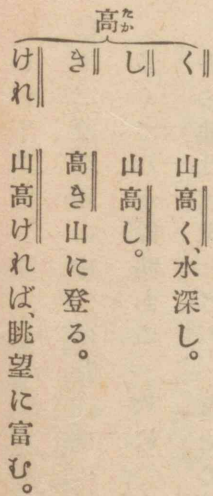 高たか
く 山高く、水深し。
し 山高し。
き 高き山に登る。
けれ 山高ければ、眺望に富む。